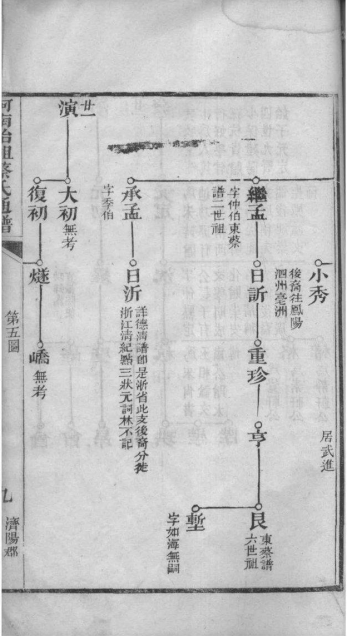 小秀
後裔往鳳陽
泗州亳洲
居武進
繼孟
字仲伯東蔡
譜二世祖
日訢
重珍
亨
艮
東蔡譜
六世祖
塹
字如海無嗣
承孟
字季伯
日沂
詳德清譜卽是浙省此支後裔分徙
浙江清紀點三狀元詞林不記
廿一
演
大初
無考
復初
燧
嶠
無考
河南始祖蔡氏通譜
第五圖
九
濟陽郡